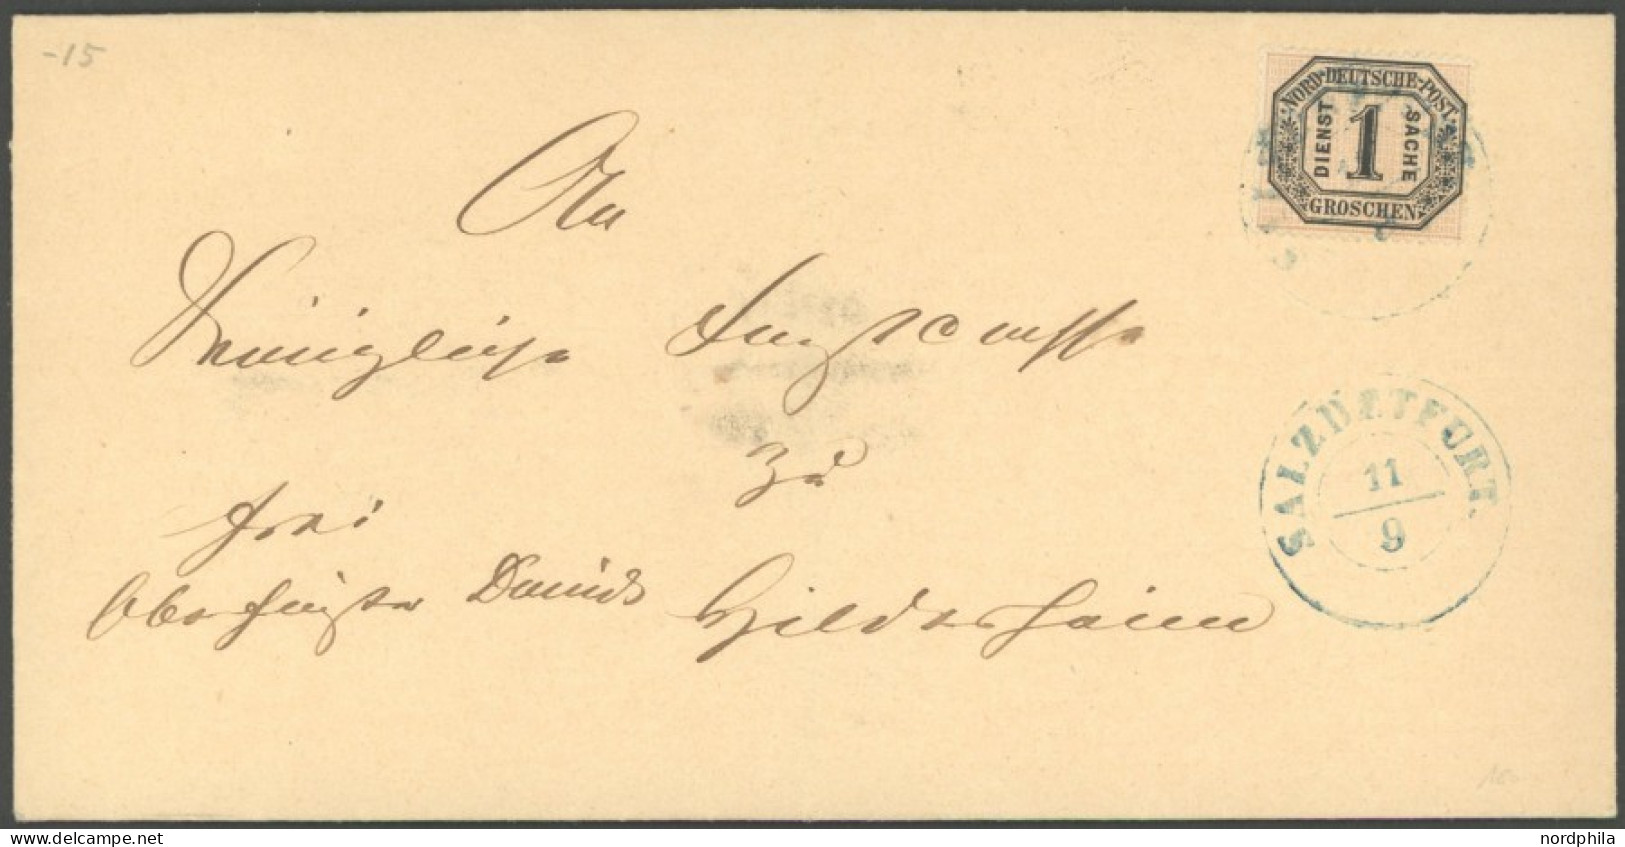 -15
NORD-DEUTSCHE-POST
DIENST
1
SACHE
GROSCHEN
An
Königliche Forstcasse
zu
frei
Hildesheim
SALZDETFURT.
11
9
www.delcampe.net
nordphila